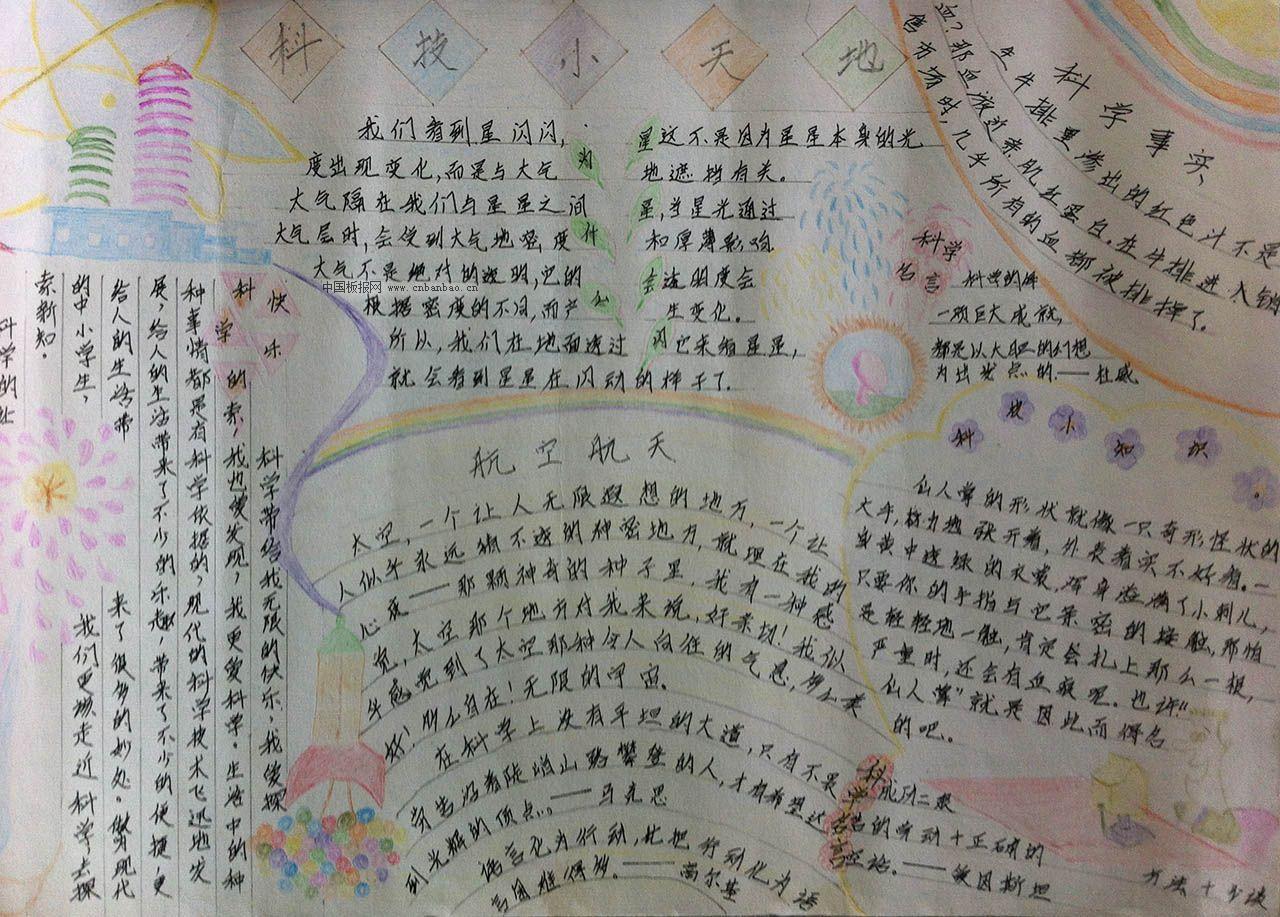 科技小天地
我们看到星闪闪,
星这不是因为星星本身的光
度出现变化,而是与大气
地遮挡有关。
大气隔在我们与星星之间
星,当星光通过
大气层时,会受到大气地密度
和厚薄影响
大气不是绝对的透明,它的
会透明度会
根据密度的不同,而产
生变化。
所以,我们在地面透过
它来看星星,
就会看到星星在闪动的样子了.
为
什
么
会
闪
中国板报网 www.cnbanbao.cn
科学事实
生牛排里渗出的红色汁不是
血?那血液近亲肌红蛋白.在牛排进入销
售市场时,几乎所有的血都被排掉了.
科学
名言
科学的每
一项巨大成就,
都是以大胆的幻想
为出发点的.——杜威
科技小知识。
仙人掌的形状就像一只奇形怪状的
大手,努力地张开着,外表看实不好看.一
当黄中透绿的衣裳,浑身造满了小刺儿,
只要你的手指与它亲密的接触,那怕
是轻轻地一触,肯定会扎上那么一根,
严重时,还会有血痕呢.也许“
仙人掌”就是因此而得名
的吧。
航空航天
太空,一个让人无限遐想的地方,一个让
人似乎永远猜不透的神密地方,就埋在我的
心底——那颗神奇的种子里,我有一种感
觉,太空那个地方对我来说,好亲切!我似
乎感觉到了太空那种令人向往的气息,那么美
好!那么自在!无限的宇宙.
在科学上没有平坦的大道,只有不畏
劳苦沿着陡峭山路攀登的人,才有希望达
到光辉的顶点。——马克思
语言化为行动,比把行动化为语
言困难得多。——高尔基
科学名言
成功二艰
苦的劳动+正确的
方法+少谈
空话.——爱因斯坦
快乐
科学的
科学带给我无限的快乐,我爱探
索,我也爱发现,我更爱科学。生活中的种
种事情都是有科学依据的,现代的科学技术飞迅地发
展,给人的生活带来了不少的乐趣,带来了不少的便捷,更
给人的生活带来了很多的妙处。做现代
的中小学生,我们更该走近科学去探
索新知.
科学的让